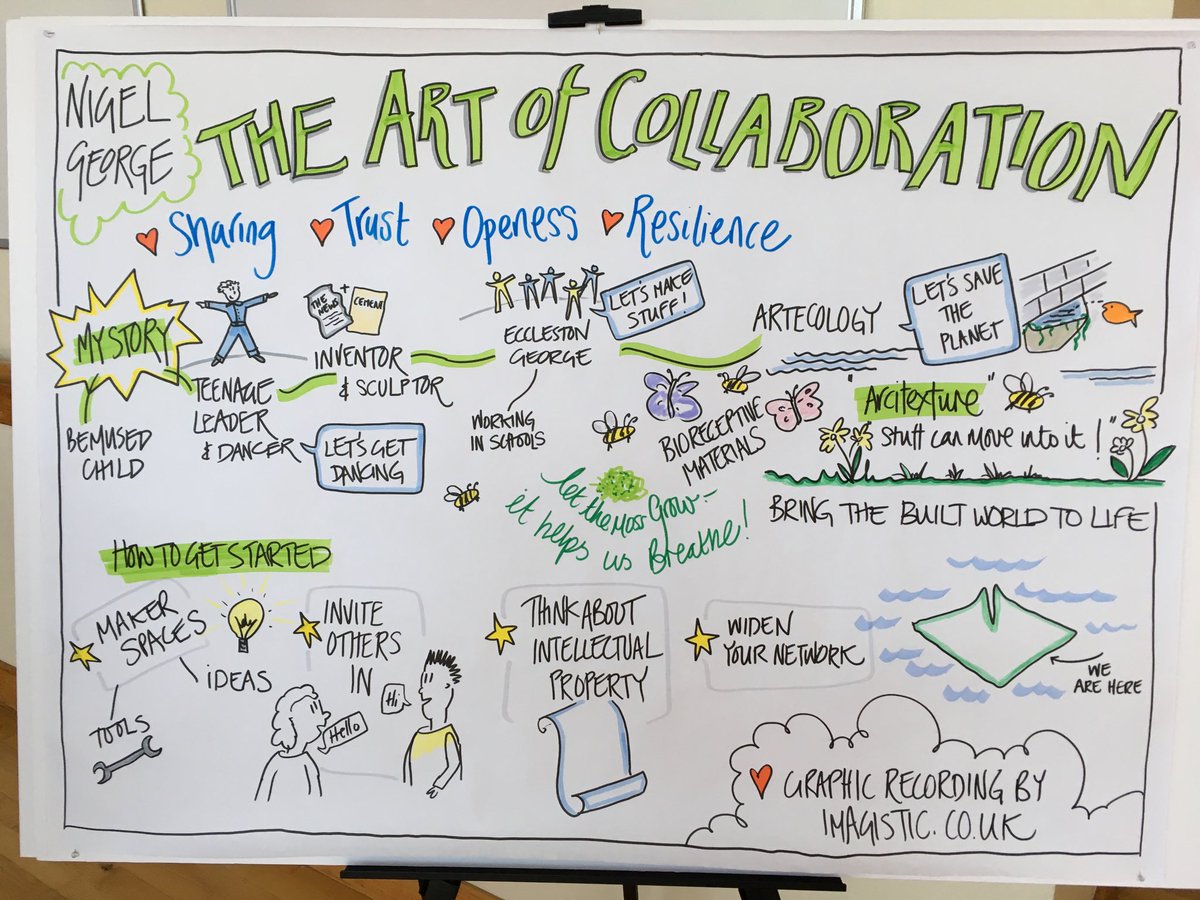 NIGEL
GEORGE
THE ART of COLLABORATION
Sharing Trust Openess Resilience
MY STORY
BEMUSED
CHILD
TEENAGE
LEADER
& DANCER
LET'S GET
DANCING
THE NEWS
+
CEMENT
INVENTOR
& SCULPTOR
ECCLESTON
GEORGE
LET'S MAKE
STUFF!
WORKING
IN SCHOOLS
ARTECOLOGY
LET'S SAVE
THE
PLANET
BIORECEPTIVE
MATERIALS
"Arcitexture"
Stuff can move into it!"
BRING THE BUILT WORLD TO LIFE
Let the Moss Grow -
it helps us Breathe!
HOW TO GET STARTED
MAKER
SPACES
IDEAS
TOOLS
INVITE
OTHERS
IN
Hello
Hi
THINK ABOUT
INTELLECTUAL
PROPERTY
WIDEN
YOUR NETWORK
WE
ARE HERE
GRAPHIC RECORDING BY
IMAGISTIC.CO.UK